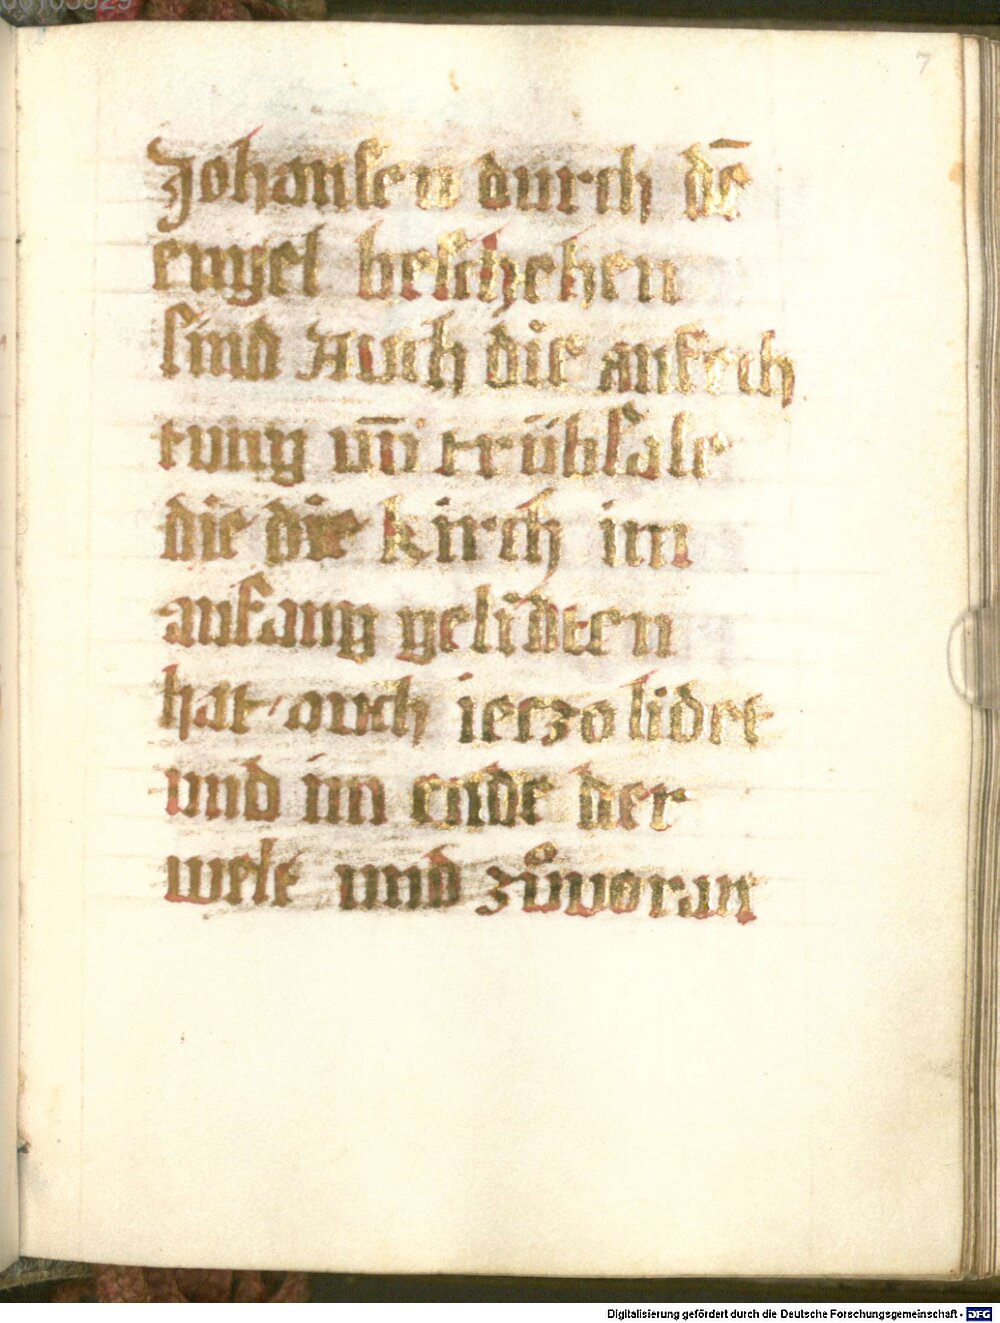 7
Johansen durch dē
engel beschehen
sind Auch die anfech
tung un̄ trübsale
die die kirch im
anfang gelidten
hat auch ieczo lidet
und im ende der
welt und zůvoran
Digitalisierung gefördert durch die Deutsche Forschungsgemeinschaft - DFG